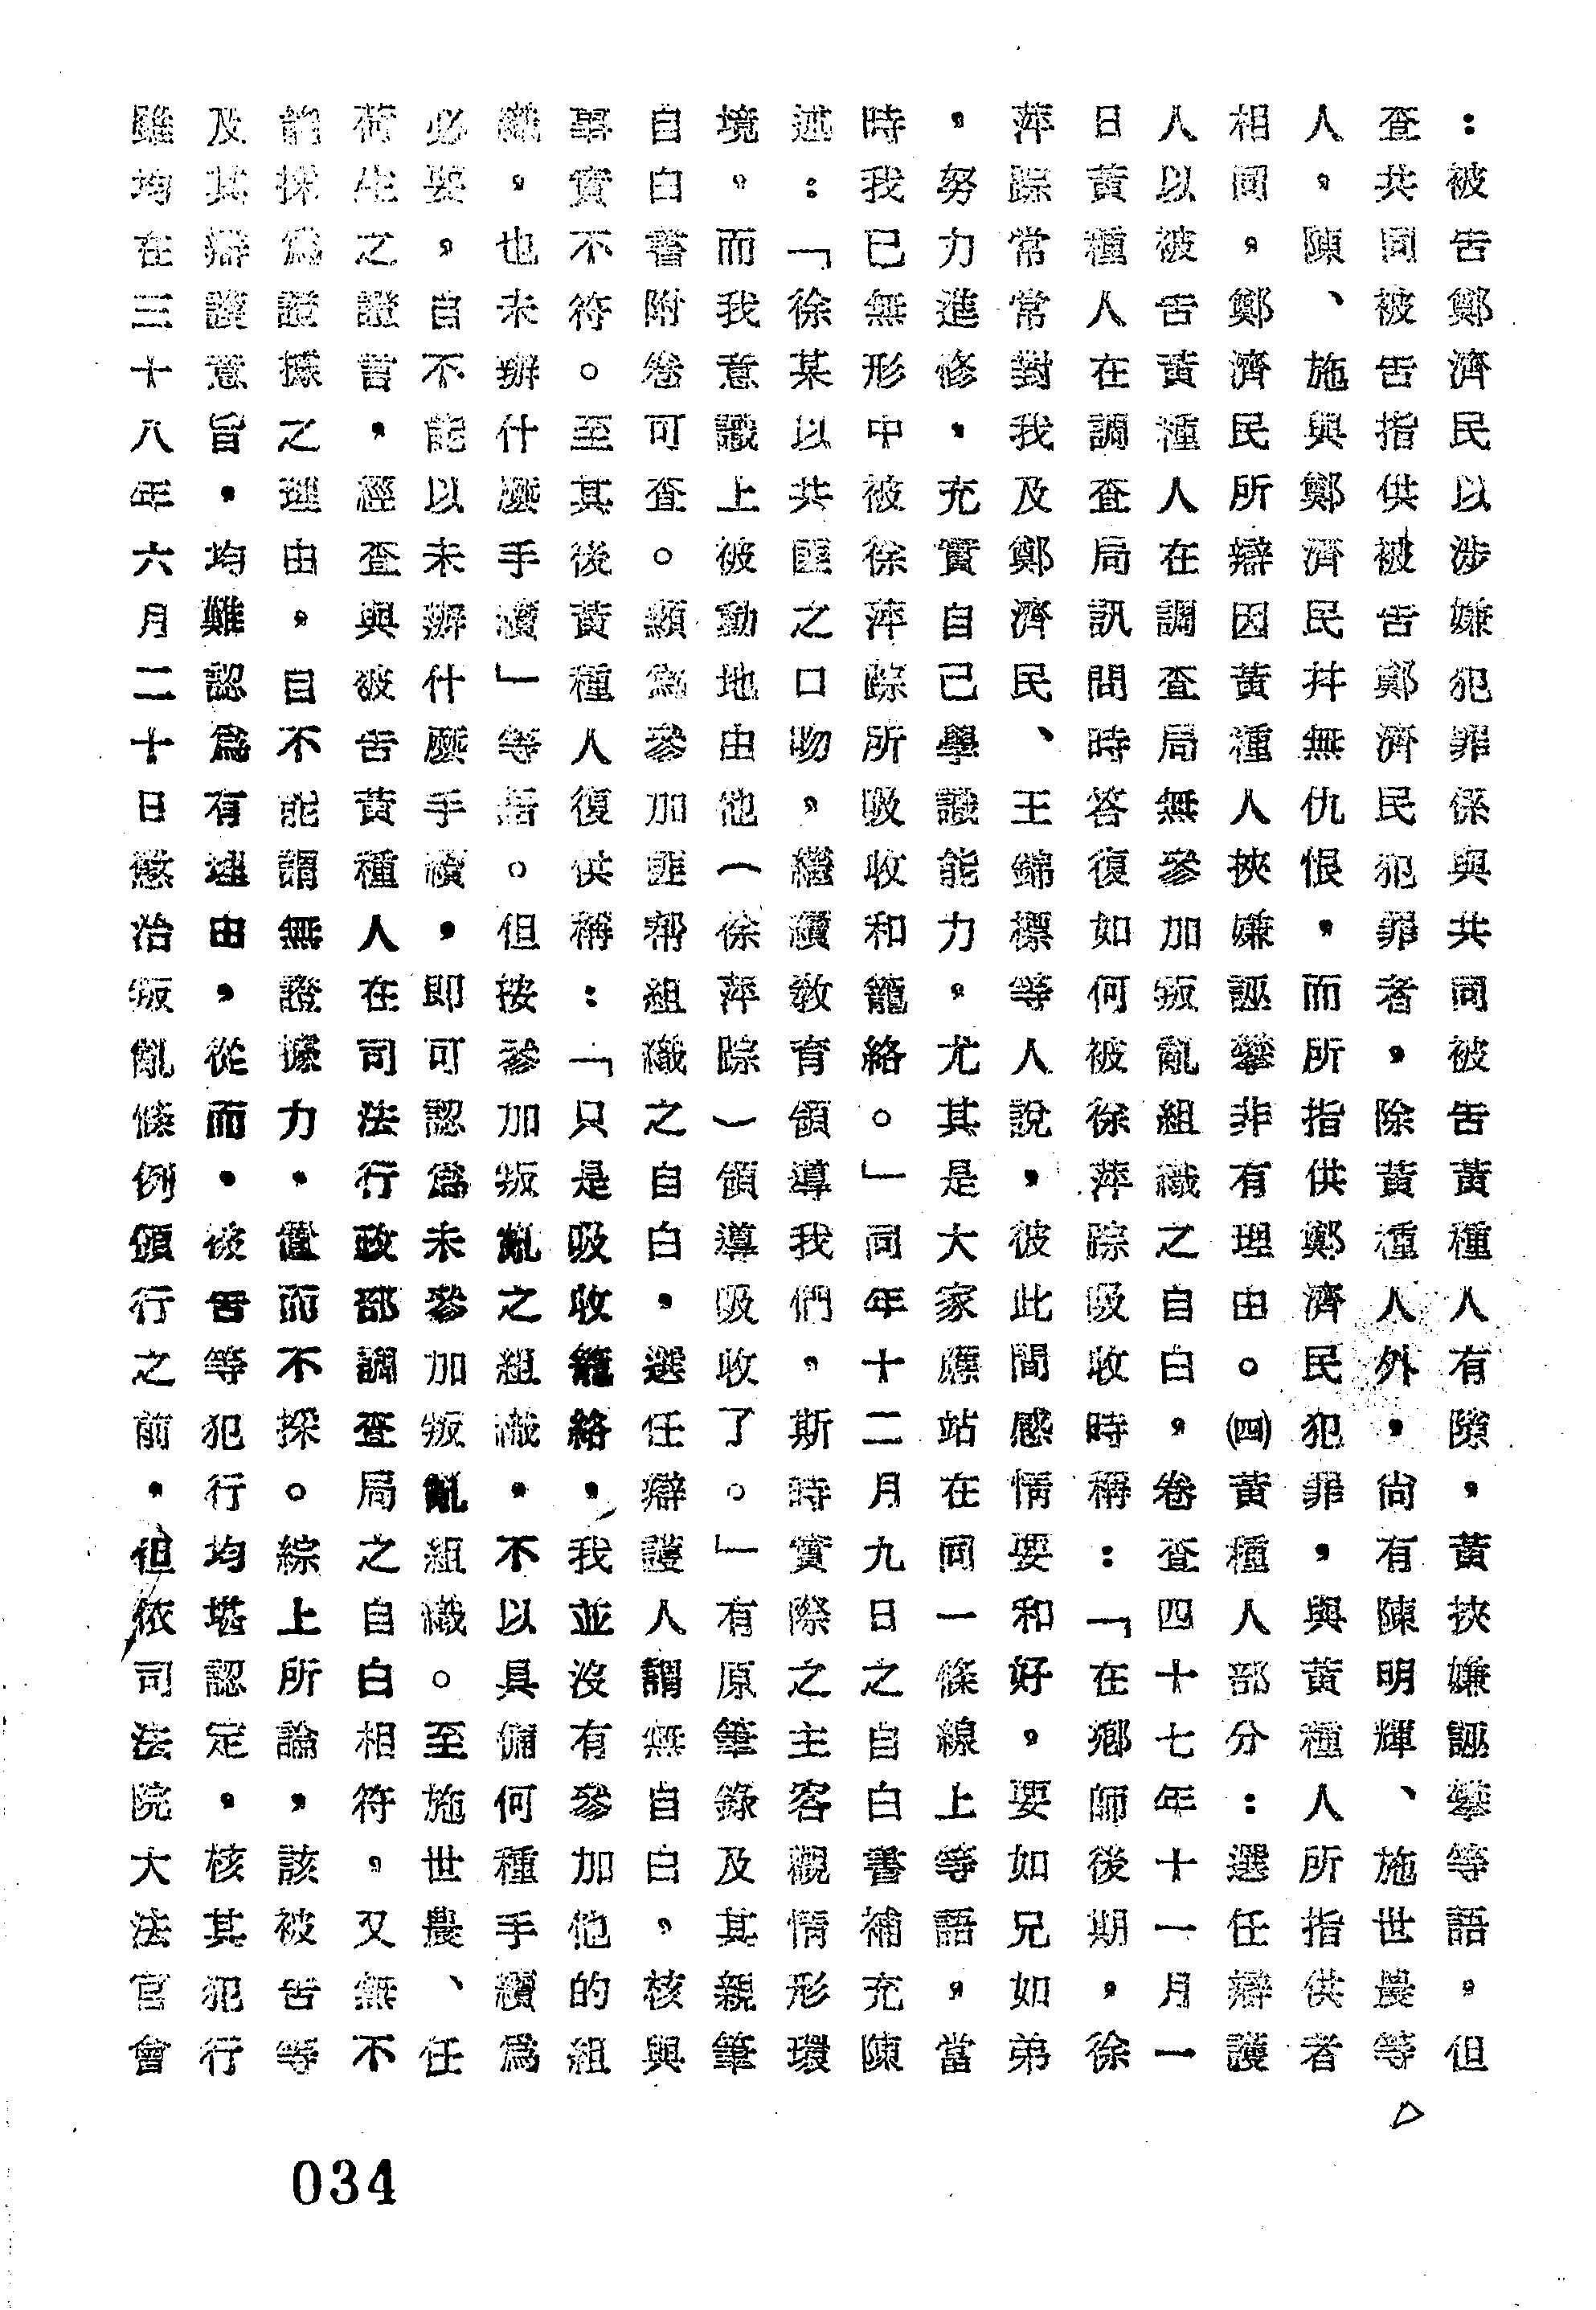 ：被告鄭濟民以涉嫌犯罪係與共同被告黃種人有隙，黃挾嫌誣攀等語。但
查共同被告指供被告鄭濟民犯罪者，除黃種人外，尚有陳明輝、施世農等
人，陳、施與鄭濟民并無仇恨，而所指供鄭濟民犯罪，與黃種人所指供者
相同，鄭濟民所辯因黃種人挾嫌誣攀非有理由。㈣黃種人部分：選任辯護
人以被告黃種人在調查局無參加叛亂組織之自白，卷查四十七年十一月一
日黃種人在調查局訊問時答復如何被徐萍踪吸收時稱：「在鄉師後期，徐
萍踪常常對我及鄭濟民、王錦標等人說，彼此間感情要和好，要如兄如弟
，努力進修，充實自己學識能力，尤其是大家應站在同一條線上等語，當
時我已無形中被徐萍踪所吸收和籠絡。」同年十二月九日之自白書補充陳
述：「徐某以共匪之口吻，繼續教育領導我們，斯時實際之主客觀情形環
境。而我意識上被動地由他（徐萍踪）領導吸收了。」有原筆錄及其親筆
自白書附卷可查。顯為參加匪幫組織之自白，選任辯護人謂無自白，核與
事實不符。至其後黃種人復供稱：「只是吸收籠絡，我並沒有參加他的組
織，也未辦什麼手續」等語。但按參加叛亂之組織，不以具備何種手續為
必要，自不能以未辦什麼手續，即可認為未參加叛亂組織。至施世農、任
荷生之證言，經查與被告黃種人在司法行政部調查局之自白相符，又無不
採為證據之理由，自不能謂無證據力，置而不採。綜上所論，該被告等
及其辯護意旨，均難認為有理由，從而，被告等犯行均堪認定，核其犯行
雖均在三十八年六月二十日懲治叛亂條例頒行之前，但依司法院大法官會
034